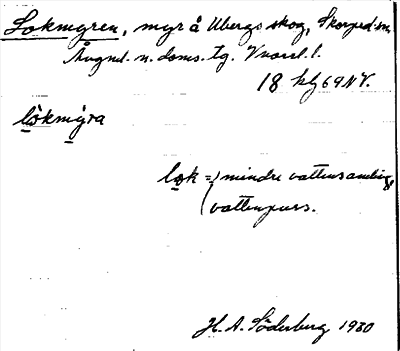 Lokmyren, myr å Ubergs skog, Skorped sn,
Ångml. n. doms. tg. Vnorrl. l.
18 hlj 69 NV.
lo̱kmy̱ra
lo̱k = mindre vattensamling,
vattenpuss.
H. A. Söderberg 1930